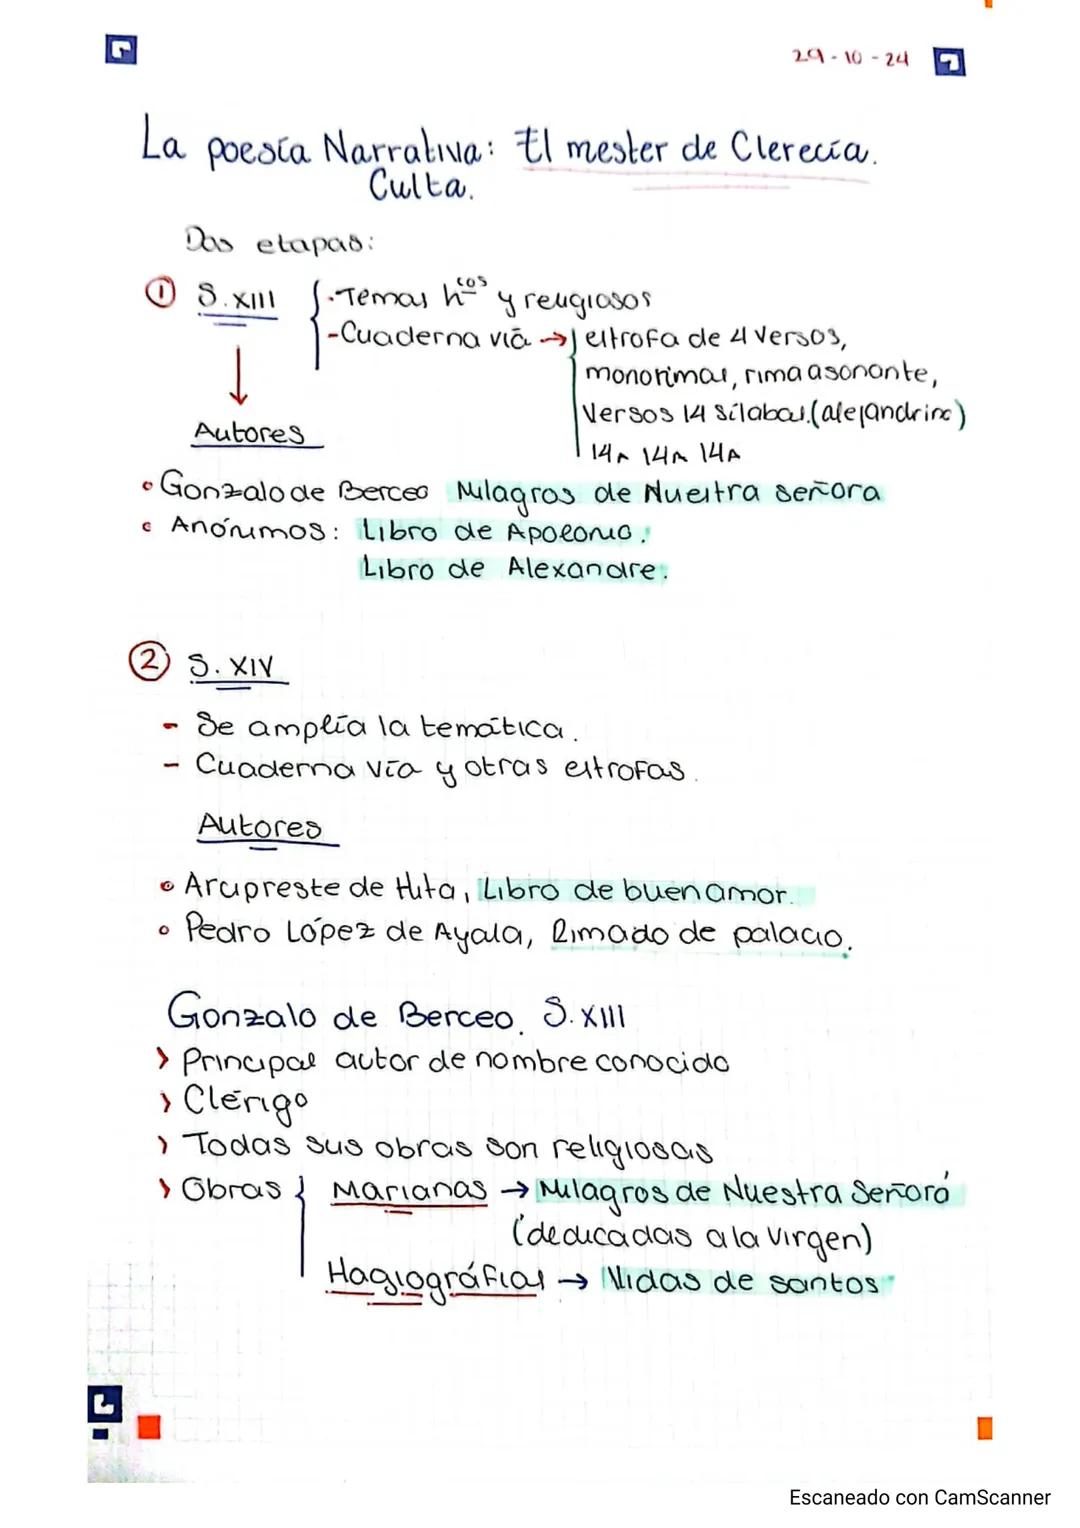 29-10-24
La poesía Narrativa: El mester de Clerecía.
Culta.
Dos etapas:
① S.XIII
-Temas hcos y religiosos
-Cuaderna vía → estrofa de 4 versos,
monorrimas, rima asonante,
Versos 14 sílabas.(alejandrino)
14A 14A 14A
Autores
• Gonzalo de Berceo Milagros de Nuestra señora
• Anónimos: Libro de Apolonio.
Libro de Alexandre.
② S. XIV
- Se amplía la temática.
- Cuaderna vía y otras estrofas.
Autores
• Arcipreste de Hita, Libro de buen amor.
• Pedro López de Ayala, Rimado de palacio.
Gonzalo de Berceo. S.XIII
> Principal autor de nombre conocido
> Clérigo
> Todas sus obras son religiosas
> Obras { Marianas → Milagros de Nuestra Señora
(dedicadas a la Virgen)
Hagiográficas → Vidas de santos
Escaneado con CamScanner